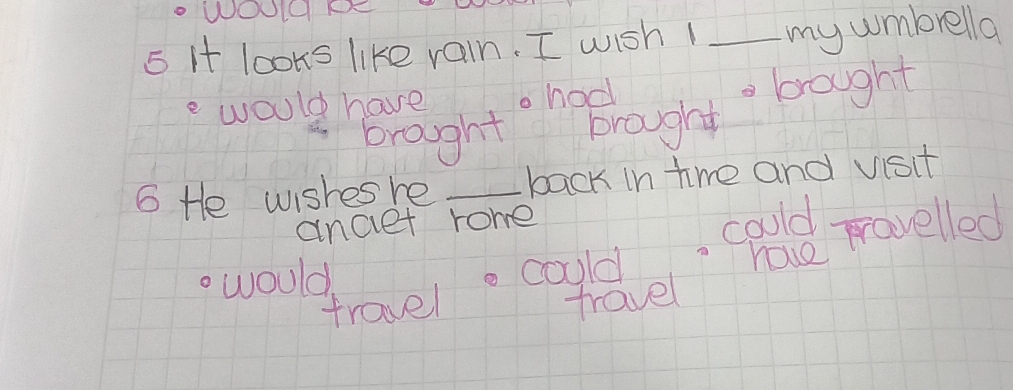 • would be
5 It looks like rain. I wish I ___ my umbrella
• would have brought • had brought • brought
6 He wishes he ___ back in time and visit
anciet rome
• would travel • could travel • could have travelled